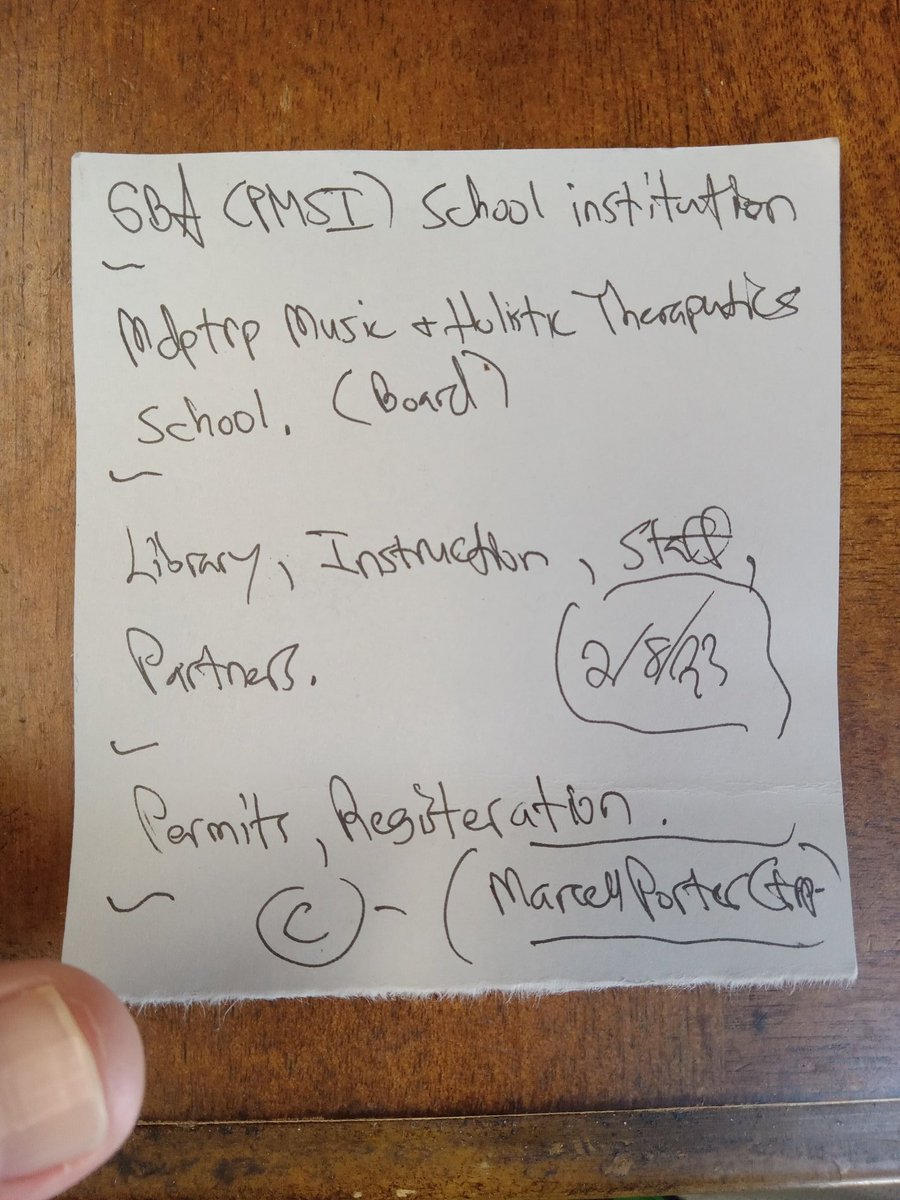 SBA (PMSI) School institution
Mdptrp Music + Holistic Theraputics
School. (Board)
Library, Instruction, Staff,
Partners.
(2/8/23)
Permits, Registeration.
© - (Marcell Porter (trp-)